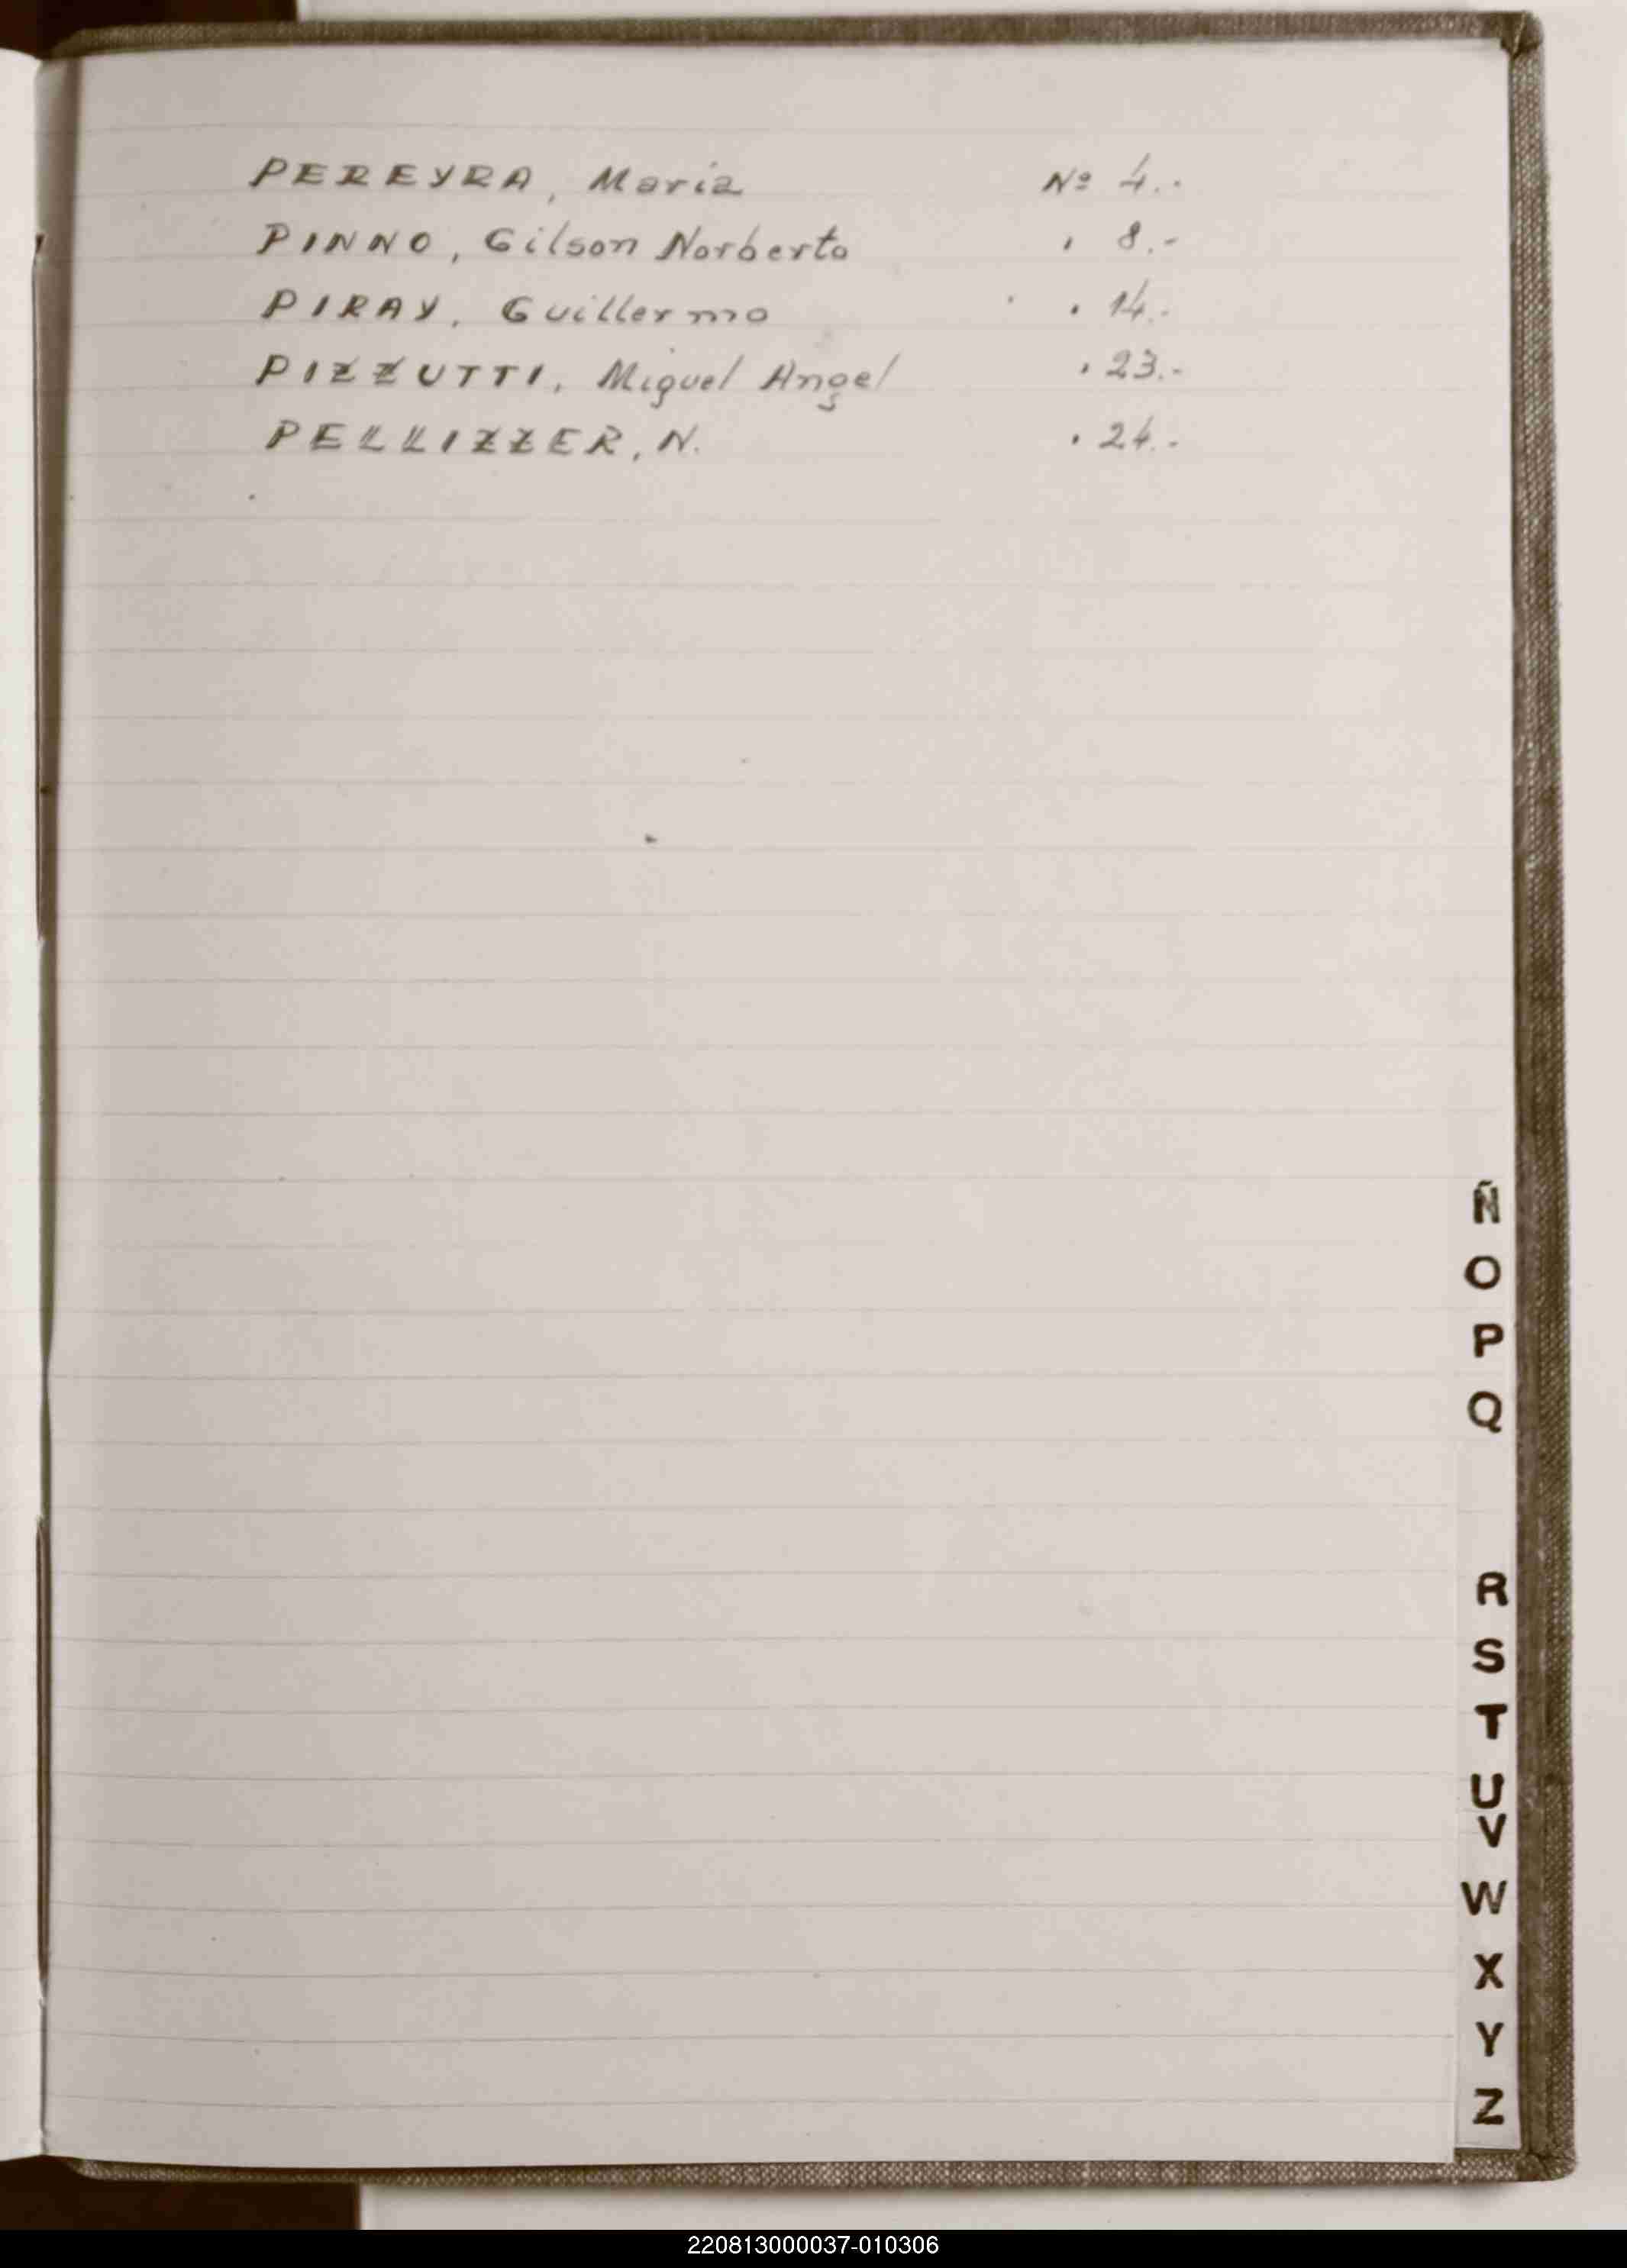 PEREYRA, Maria Nº 4.-
PINNO, Gilson Norberto " 8.-
PIRAY, Guillermo " 14.-
PIZZUTTI, Miguel Angel " 23.-
PELLIZZER, N. " 24.-
Ñ
O
P
Q
R
S
T
U
V
W
X
Y
Z
220813000037-010306